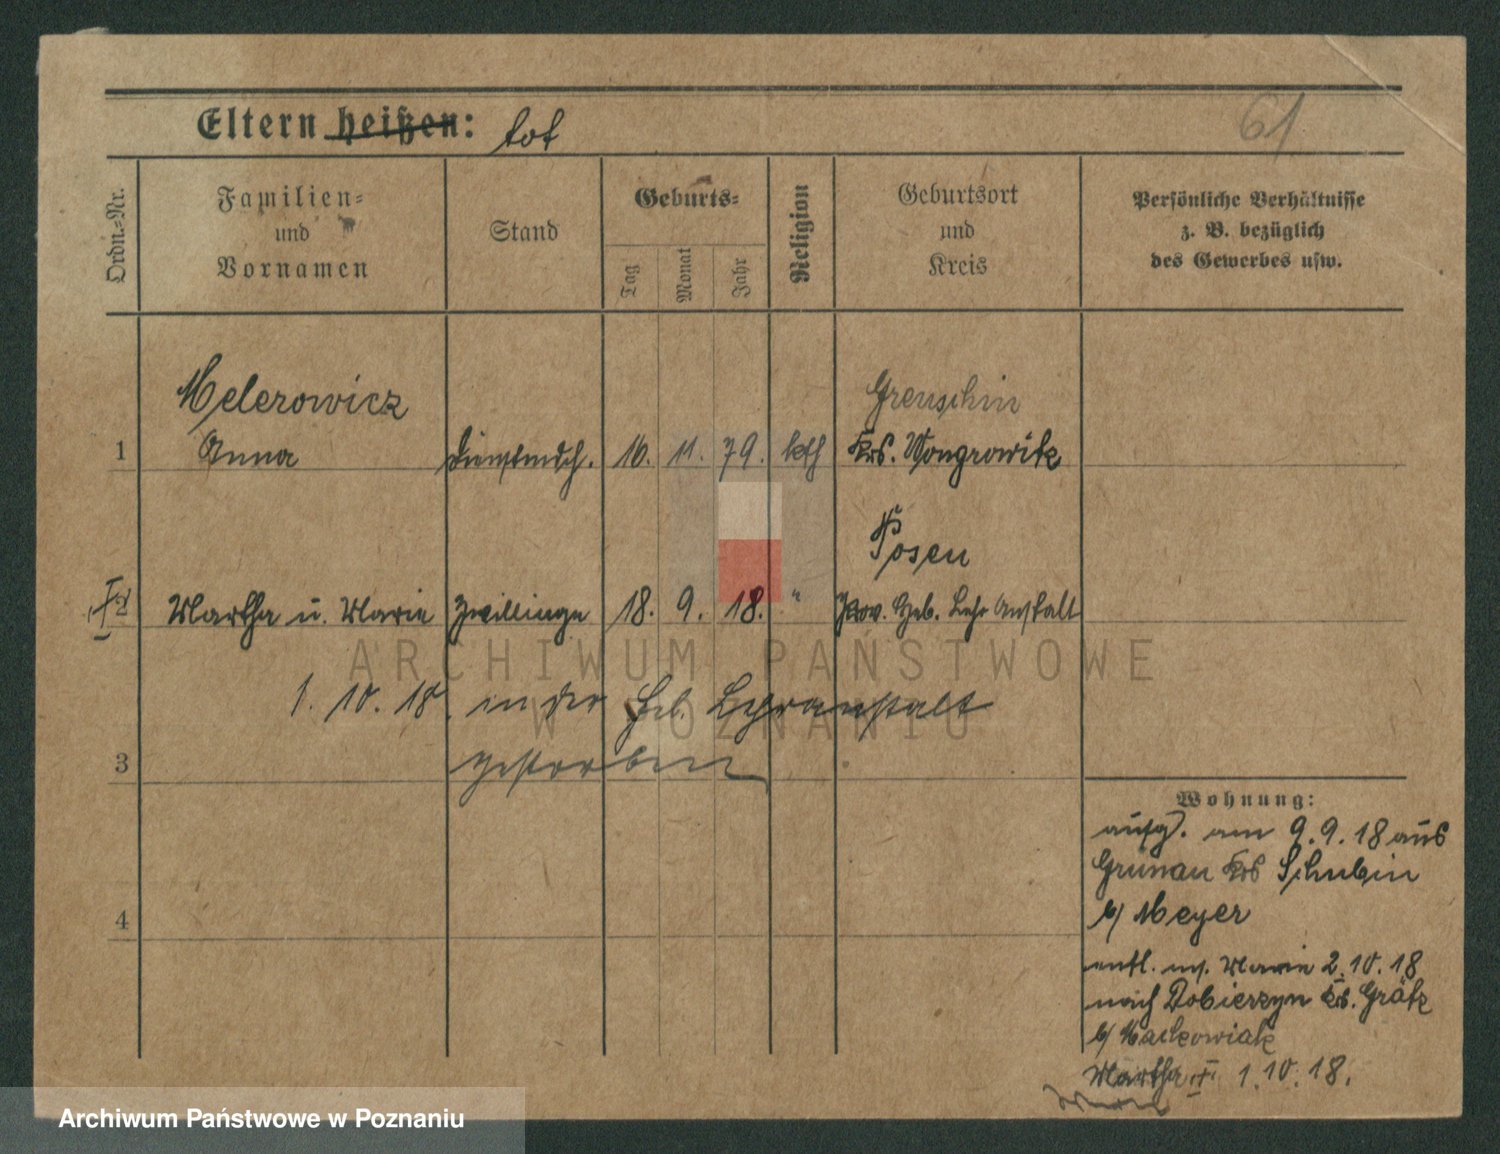 61
Eltern heißen: tot
Ordn.-Nr.
Familien-
und
Vornamen
Stand
Geburts-
Tag
Monat
Jahr
Religion
Geburtsort
und
Kreis
Persönliche Verhältnisse
z. B. bezüglich
des Gewerbes usw.
Melerowicz Grenschin
1 Anna Dienstmdch. 16. 11. 79. kth Krs. Wongrowitz
Posen
2 Martha u. Marie Zwillinge 18. 9. 18. " Prov. Heb. Lehr Anstalt
1. 10. 18. in der Heb. Lehranstalt
3 gestorben
4
Wohnung:
aufg. am 9.9.18 aus
Grünau Krs Schubin
b/ Meyer
entl. m. Marie 2.10.18
nach Dobierzyn Krs. Grätz
b/ Mackowiak
Martha † 1.10.18.
ARCHIWUM PAŃSTWOWE
W POZNANIU
Archiwum Państwowe w Poznaniu